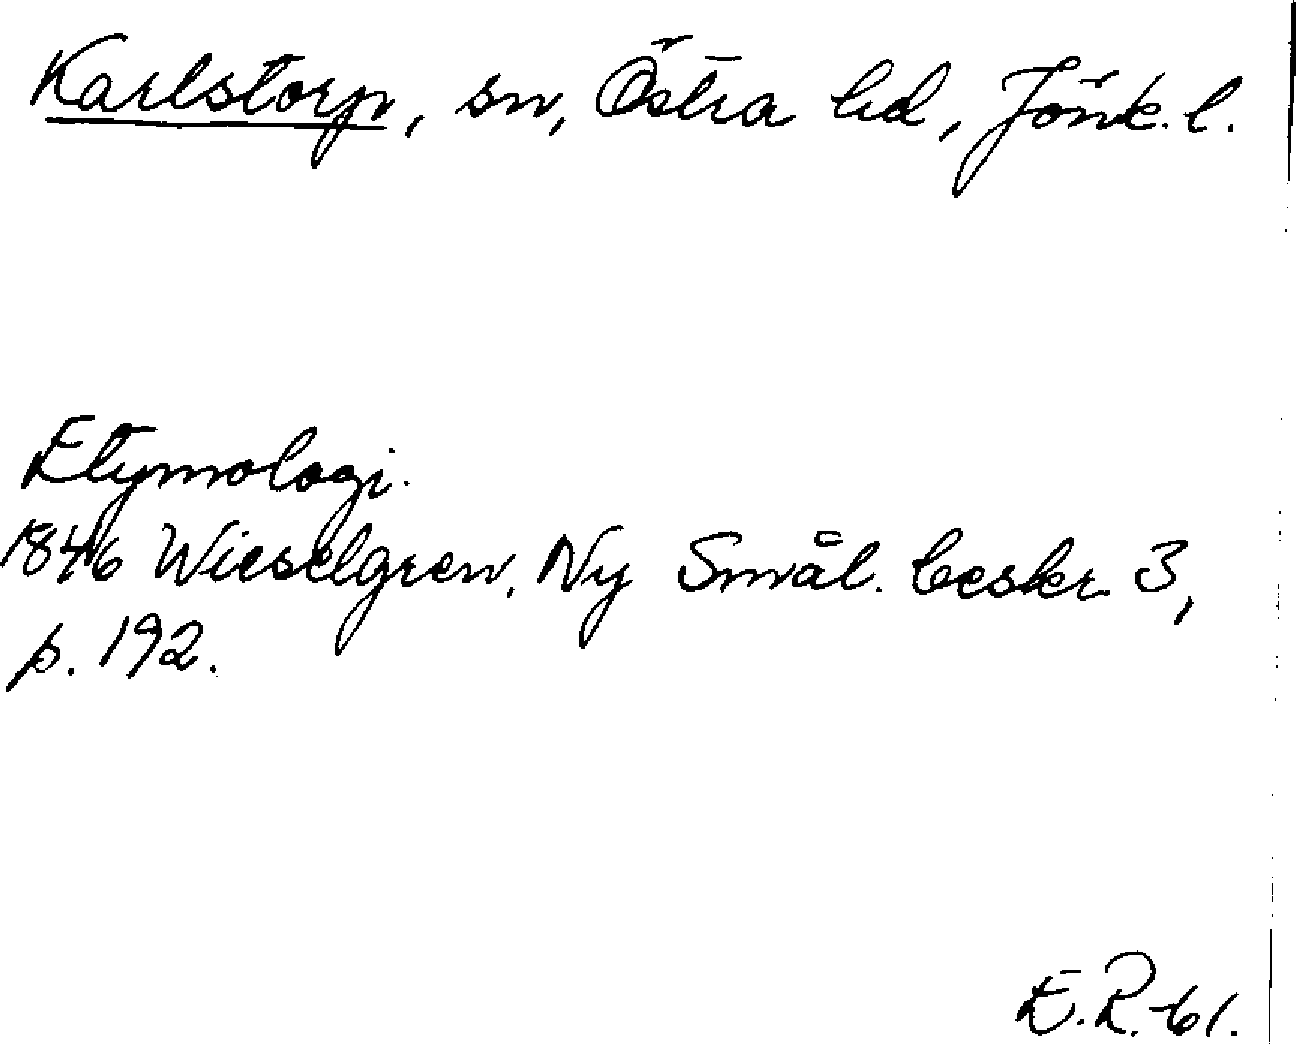 Karlstorp, sn, Östra hd, Jönk. l.
Etymologi.
1846 Wieselgren, Ny Smål. beskr. 3,
p. 192.
E.R. 61.